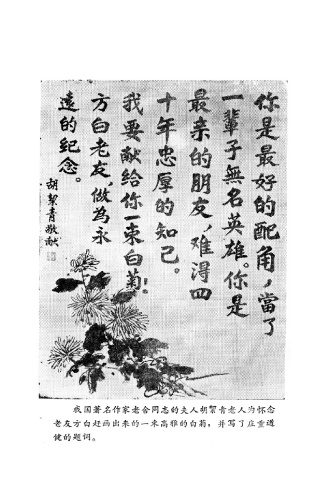 你是最好的配角，當了
一輩子無名英雄。你是
最亲的朋友，难得四
十年忠厚的知己。
我要献给你一束白菊！
方白老友，做為永
遠的纪念。
胡絜青敬献
我国著名作家老舍同志的夫人胡絜青老人为怀念
老友方白赶画出来的一束高雅的白菊，并写了庄重遒
健的题词。